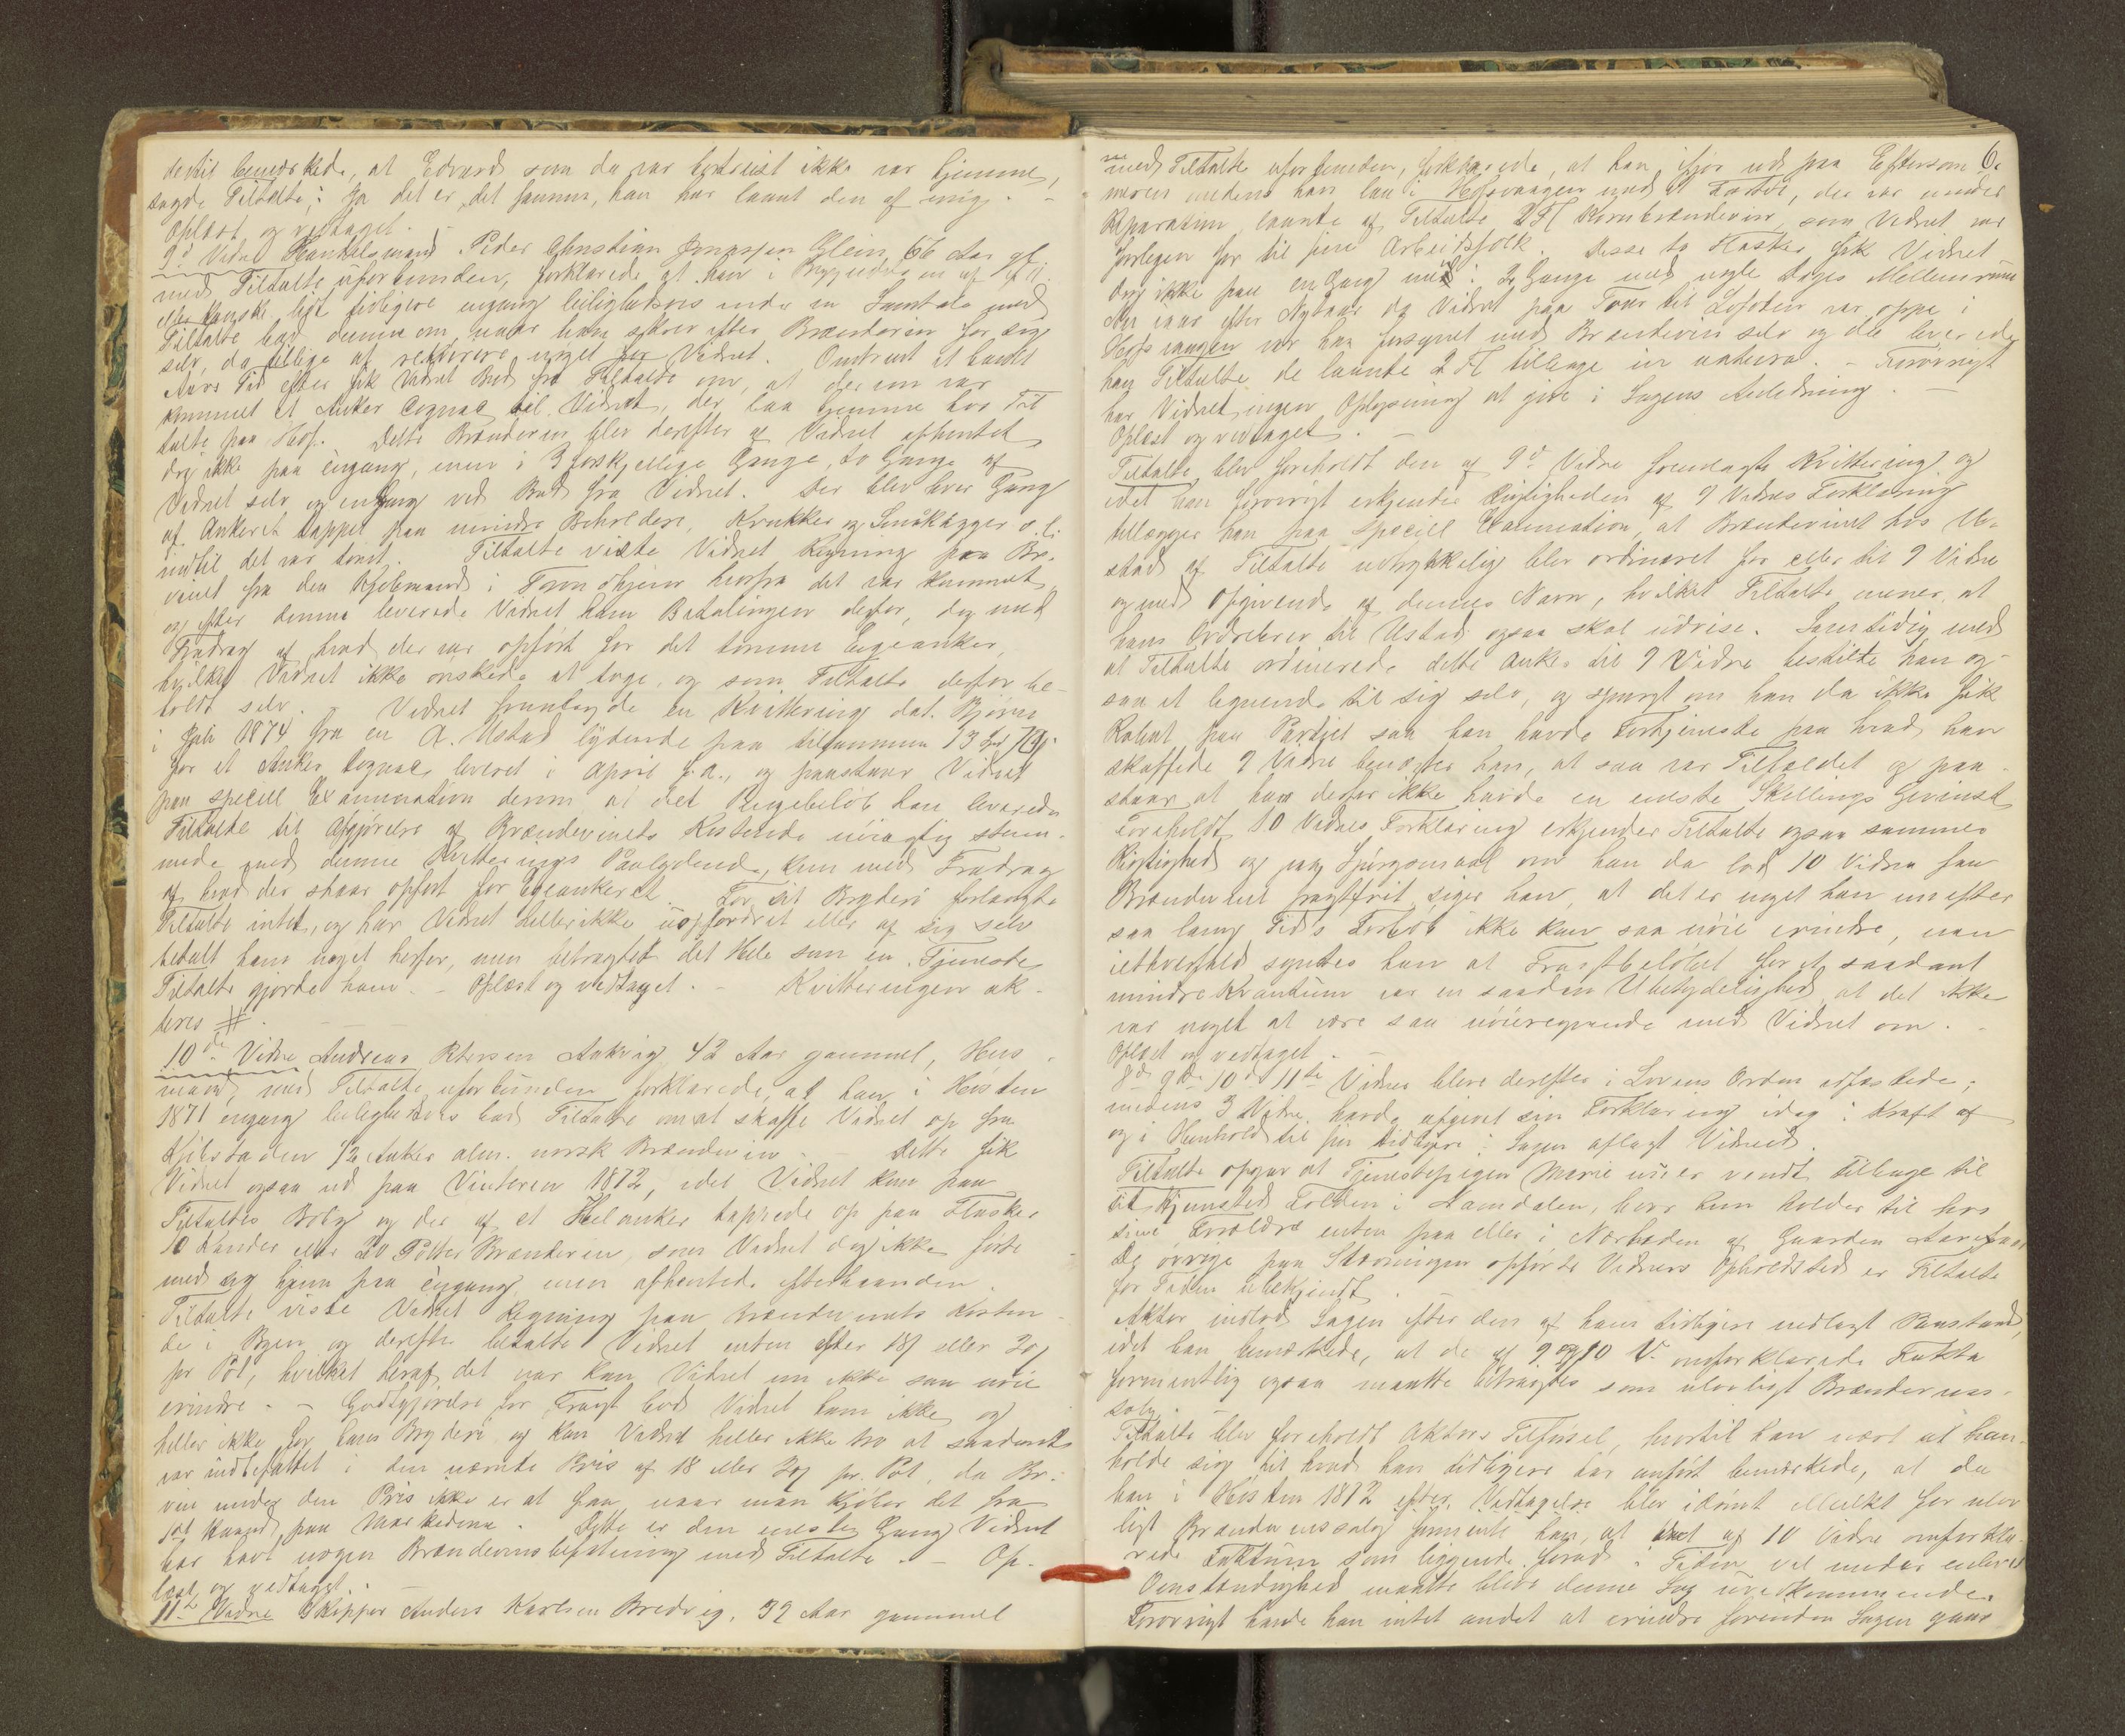 dertil bemærkede, at Edvard som da var bortreist ikke var hjemme,
sagde Tiltalte: Ja det er det samme, han har laant den af mig. -
Oplæst og vedtaget.
9d Vidne Handelsmand Peder Christian Glein, 66 Aar gl.
med Tiltalte uforbunden, forklarede at han i Begyndelsen af
eller kanske lidt tidligere engang leilighedsvis under en Samtale med
Tiltalte bad denne om naar han skrev efter Brændevin for sig
selv, da tillige at rekvirere noget for Vidnet. Omtrent et halvt
Aars Tid efter fik Vidnet Bud fra Tiltalte om, at der nu var
kommet et Anker Cognac til Vidnet, der laa hjemme hos Til
talte paa Hof. Dette Brændevin blev derefter af Vidnet afhentet
dog ikke paa engang, men i 3 forskjellige Gange, to Gange af
Vidnet selv og engang ved Bud fra Vidnet. Der blev hver Gang
af Ankeret tappet paa mindre Beholdere, Krukker og Småkagger o. l.
indtil det var tomt. Tiltalte viste Vidnet Regning paa Br.
vinet fra den Kjøbmand i Trondhjem hvorfra det var kommet
og efter denne leverede Vidnet ham Betalingen derfor, dog med
Fradrag af hvad der var opført for det tomme Egeanker,
hvilket Vidnet ikke ønskede at tage og som Tiltalte derfor be-
holdt selv. Vidnet fremlagde en Kvittering dat. Bjørn
i Juli 1874 fra en A. Ustad lydende paa tilsammen 13
for et Anker Cognac leveret i April s.a., og paastaar Vidnet
paa speciel Examination derom at det Pengebeløb han leverede
Tiltalte til Afgjørelse af Brændevinets Kostende nøiagtig stem-
mede med denne Kvitterings Paalydende, kun med Fradrag
af hvad der staar opført for Egeankeret. For sit Bryderi forlangte
Tiltalte intet, og har Vidnet heller ikke uopfordret eller af sig selv
betalt ham noget herfor, men betragtet det Hele som en Tjeneste
Tiltalte gjorde ham. - Oplæst og vedtaget. - Kvitteringen ak-
teres #.
10de Vidne Andreas Petersen Aakvig 42 Aar gammel, Hus-
mand, med Tiltalte uforbunden forklarede, at han i Høsten
1871 engang leilighedsvis bad Tiltalte om at skaffe Vidnet op fra
Kjøbstaden 1/2 Anker alm. norsk Brændevin. - Dette fik
Vidnet ogsaa ud paa Vinteren 1872, idet Vidnet kom paa
Tiltaltes Bolig og der af et Helanker tappede op paa Flasker
10 Kander eller 20 Potter Brændevin, som Vidnet dog ikke førte
med sig hjem paa engang, men afhentede efterhaanden.
Tiltalte viste Vidnet Regning paa Brændevinets Kosten-
de i Byen og derefter betalte Vidnet enten efter 18 eller 20
pr Pot, hvilket heraf det var kan Vidnet nu ikke saa nøie
erindre. - Godtgjørelse for Fragt bød Vidnet ham ikke og
heller ikke for hans Bryderi og kan Vidnet heller ikke tro at saadant
var indbefattet i den nævnte Pris af 18 eller 20 pr. Pot, da Br.
vin under den Pris ikke er at faa, naar man kjøber det fra
1st Haand paa Markederne. Dette er den eneste Gang Vidnet
har havt nogen Brændevinsbefatning med Tiltalte. - Op-
læst og vedtaget.
11te Vidne Skipper Anders Karlsen Bredvig, 39 Aar gammel
6.
med Tiltalte uforbunden, forklarede, at han ifjor ud paa Eftersom
meren medens han laa i Hofsvaagen med et Fartøi, der var under
Reparation laante af Tiltalte 2 Fl Kornbrændevin, som Vidnet var
forlegen for til sine Arbeidsfolk. Disse to Flasker fik Vidnet
dog ikke paa en Gang men i 2 Gange med nogle Dages Mellemrum
Nu iaar efter Nytaar da Vidnet paa Tour til Lofoten var oppe i
Hofsvaagen var han forsynet med Brændevin selv og da leverede
han Tiltalte de laante 2 Fl tilbage in natura. - Forøvrigt
har Vidnet ingen Oplysning at give i Sagens Anledning. -
Oplæst og vedtaget. -
Tiltalte blev foreholdt den af 9d Vidne fremlagte Kvittering og
idet han forøvrigt erkjender Rigtigheden af 9 Vidnes Forklaring
tillægger han paa speciel Examination, at Brændevinet hos U-
stad af Tiltalte udtrykkelig blev ordineret for eller til 9 Vidne
og med Opgivende af dennes Navn, hvilket Tiltalte mener at
hans Ordrebrev til Ustad ogsaa skal udvise. Samtidig med
at Tiltalte ordinerede dette Anker til 9 Vidne bestilte han og-
saa et lignende til sig selv, og spurgt om han da ikke fik
Rabat paa Partiet saa han havde Fortjeneste paa hvad han
skaffede 9 Vidne benægter han, at saa var Tilfældet og paa-
staar at han derfor ikke havde en eneste Skillings Gevinst
Foreholdt 10 Vidnes Forklaring erkjender Tiltalte ogsaa sammes
Rigtighed og paa Spørgsmaal om han da lod 10 Vidne faa
Brændevinet fragtfrit siger han, at det er noget han nu efter
saa lang Tids Forløb ikke kan saa nøie erindre, men
ialfald syntes han at Fragtbeløbet for et saadant
mindre Kvantum var en saadan Ubetydelighed at det ikke
var noget at være saa nøieregnende med Vidnet om. -
Oplæst og vedtaget. -
8de 9de 10de 11te Vidner bleve derefter i Lovens Orden edfæstede;
medens 3 Vidne havde afgivet sin Forklaring idag i Kraft af
og i Henhold til sin tidligere i Sagen aflagt Vidneed.
Tiltalte opgav at Tjenestepigen Marie nu er vendt tilbage til
sit Hjemsted Folden i Namdalen, hvor hun holder til hos
sine Forældre enten paa eller i Nærheden af Gaarden
De øvrige paa Stævningen opførte Vidners Opholdssted er Tiltalte
for Tiden ubekjendt. -
Aktor indlod Sagen efter den af ham tidligere nedlagt Paastand,
idet han bemærkede, at de af 9 og 10 V. omforklarede Fakta
formentlig ogsaa maatte betragtes som ulovligt Brændevins-
salg. -
Tiltalte blev foreholdt Aktors Tilførsel, hvortil han næst at hen-
holde sig til hvad han tidligere har anført bemærkede, at da
han i Høsten 1872 efter Vedtagelse blev idømt Mulkt for ulov
ligt Brændevinssalg formente han, at det af 10 Vidne omforkla-
rede Faktum som liggende forud i Tiden vel under enhver
Omstændighed maatte blive denne Sag uvedkommende.
Forøvrigt havde han intet andet at erindre forinden Sagen gaar